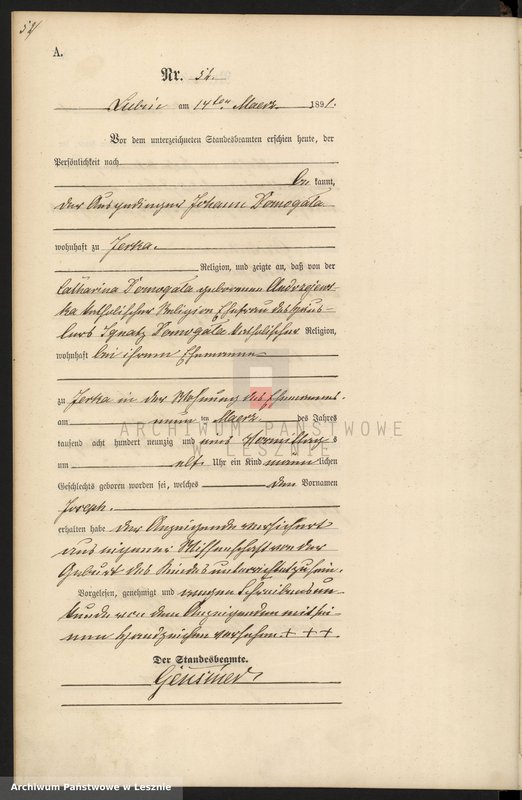 52
A.
Nr. 52.
Lubin am 14ten Maerz 1891.
Vor dem unterzeichneten Standesbeamten erschien heute, der
Persönlichkeit nach
be kannt,
der Ausgedinger Johann Domogala
wohnhaft zu Jerka.
Religion, und zeigte an, daß von der
Catharina Domogala geborenen
ka katholischer Religion Ehefrau des Häus-
lers Ignatz Domogala katholischer Religion,
wohnhaft bei ihrem Ehemanne
zu Jerka in der Wohnung des Ehemannes.
am neun ten Maerz des Jahres
tausend acht hundert neunzig und eins Vormittag s
um elf Uhr ein Kind männ lichen
Geschlechts geboren worden sei, welches den Vornamen
Joseph.
erhalten habe der Anzeigende versichert
aus eigener Wissenschaft von der
Geburt des Kindes unterrichtet zu sein.
Vorgelesen, genehmigt und wegen Schreibensun-
kunde von dem Anzeigenden mit sei-
nem Handzeichen versehen + + +
Der Standesbeamte.
ARCHIWUM PAŃSTWOWE
W LESZNIE
Archiwum Państwowe w Lesznie